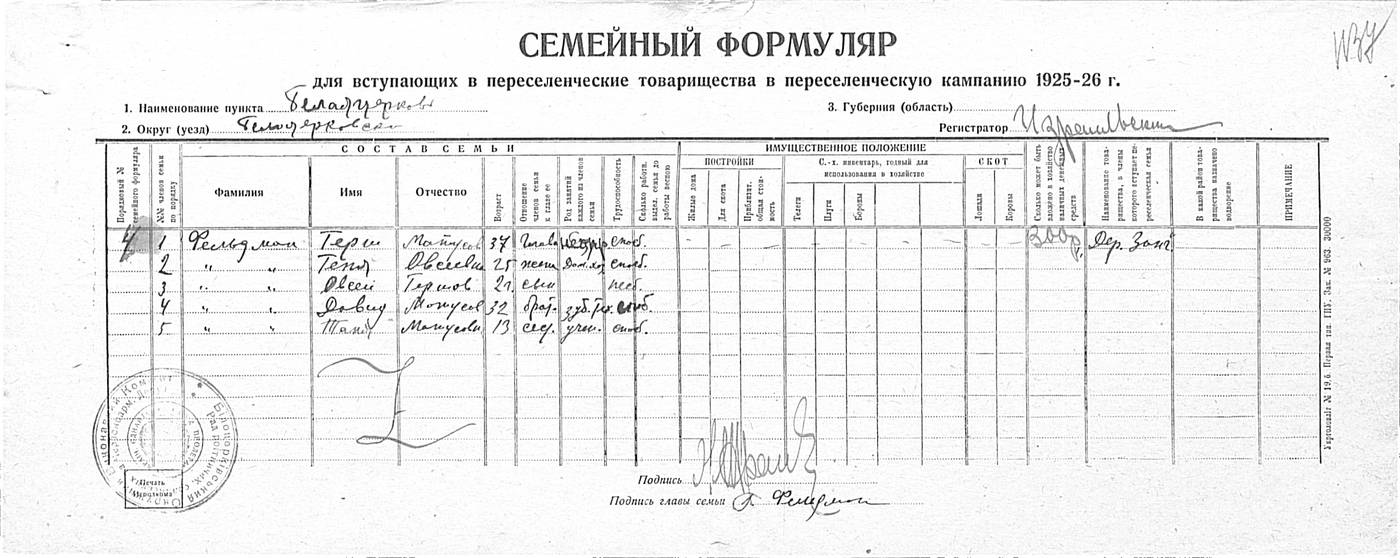 № 37
СЕМЕЙНЫЙ ФОРМУЛЯР
для вступающих в переселенческие товарищества в переселенческую кампанию 1925-26 г.
1. Наименование пункта Белая церковь
3. Губерния (область)
2. Округ (уезд) Белоцерковский
Регистратор
СОСТАВ СЕМЬИ
ИМУЩЕСТВЕННОЕ ПОЛОЖЕНИЕ
Порядковый № семейного формуляра
№№ членов семьи по порядку
Фамилия
Имя
Отчество
Возраст
Отношение членов семьи к главе ее
Род занятий каждого из членов семьи
Трудоспособность
Сколько работн. выдел. семья до работы весною
ПОСТРОЙКИ
Жилые дома
Для скота
Приблизит. общая стоимость
С.-х. инвентарь, годный для использования в хозяйстве
Телеги
Плуги
Бороны
СКОТ
Лошади
Коровы
Сколько может быть вложено в хозяйство наличных денежных средств
Наименование товарищества, в члены которого вступает переселенческая семья
В какой район товарищества назначено водворение
ПРИМЕЧАНИЕ
4 1 Фельдман Герш Матусов 37 глава способ. – – – – – – – – 300 р. Дер.
2 " " Геня Овсеевна 25 жена Дом. хоз. способ.
3 " " Овсей Гершов 2 г. сын несп.
4 " " Давид Матусов 32 брат. зуб. тех. способ.
5 " " Таня Матусовн 13 сес. учен. способ.
Печать Исполкома
Подпись
Подпись главы семьи Г. Фельдман
Укрголовліт № 19. б. Перша тип. ГПУ. Зак. № 963. 30000